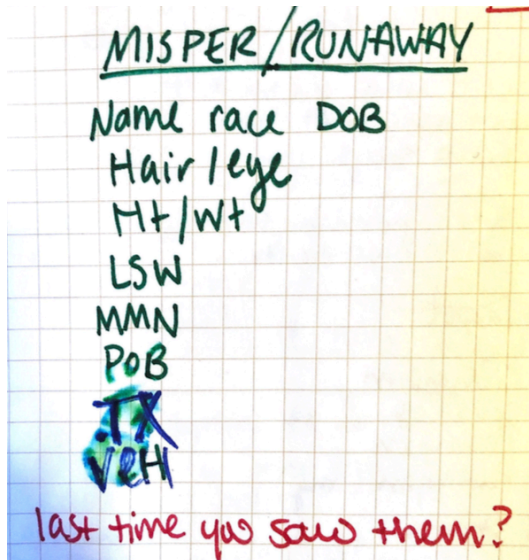 MISPER/RUNAWAY
Name race DOB
Hair/eye
Ht/Wt
LSW
MMN
POB
TX
VEH
last time you saw them?